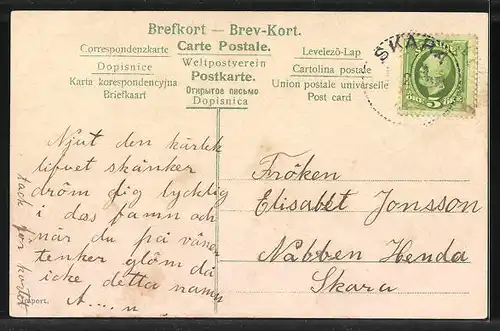 Brefkort — Brev-Kort.
Correspondenzkarte Carte Postale. Levelező-Lap
Dopisnice Weltpostverein Cartolina postale
Karta korespondencyjna Postkarte. Union postale universelle
Briefkaart Открытое письмо Post card
Dopisnica
SKARA
5 ÖRE 5
Njut den kärlek
lifvet skänker
dröm dig lycklig
i das famn och
när du på vänner
tenker glöm då
icke detta namn
A....n
tack för kortet
Import.
Fröken
Elisabet Jonsson
Nabben Henda
Skara